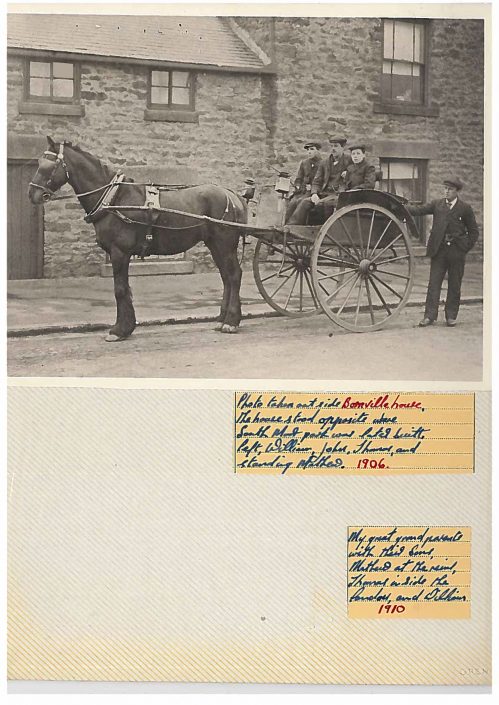 Photo taken out side Bonville house.
The house stood opposite were
South Moor park was lated built.
left, William, John, Thomas, and
standing Mathew. 1906.
My great grand parents
with their Sons,
Mathew at the reins,
Thomas in side the
and William
1910